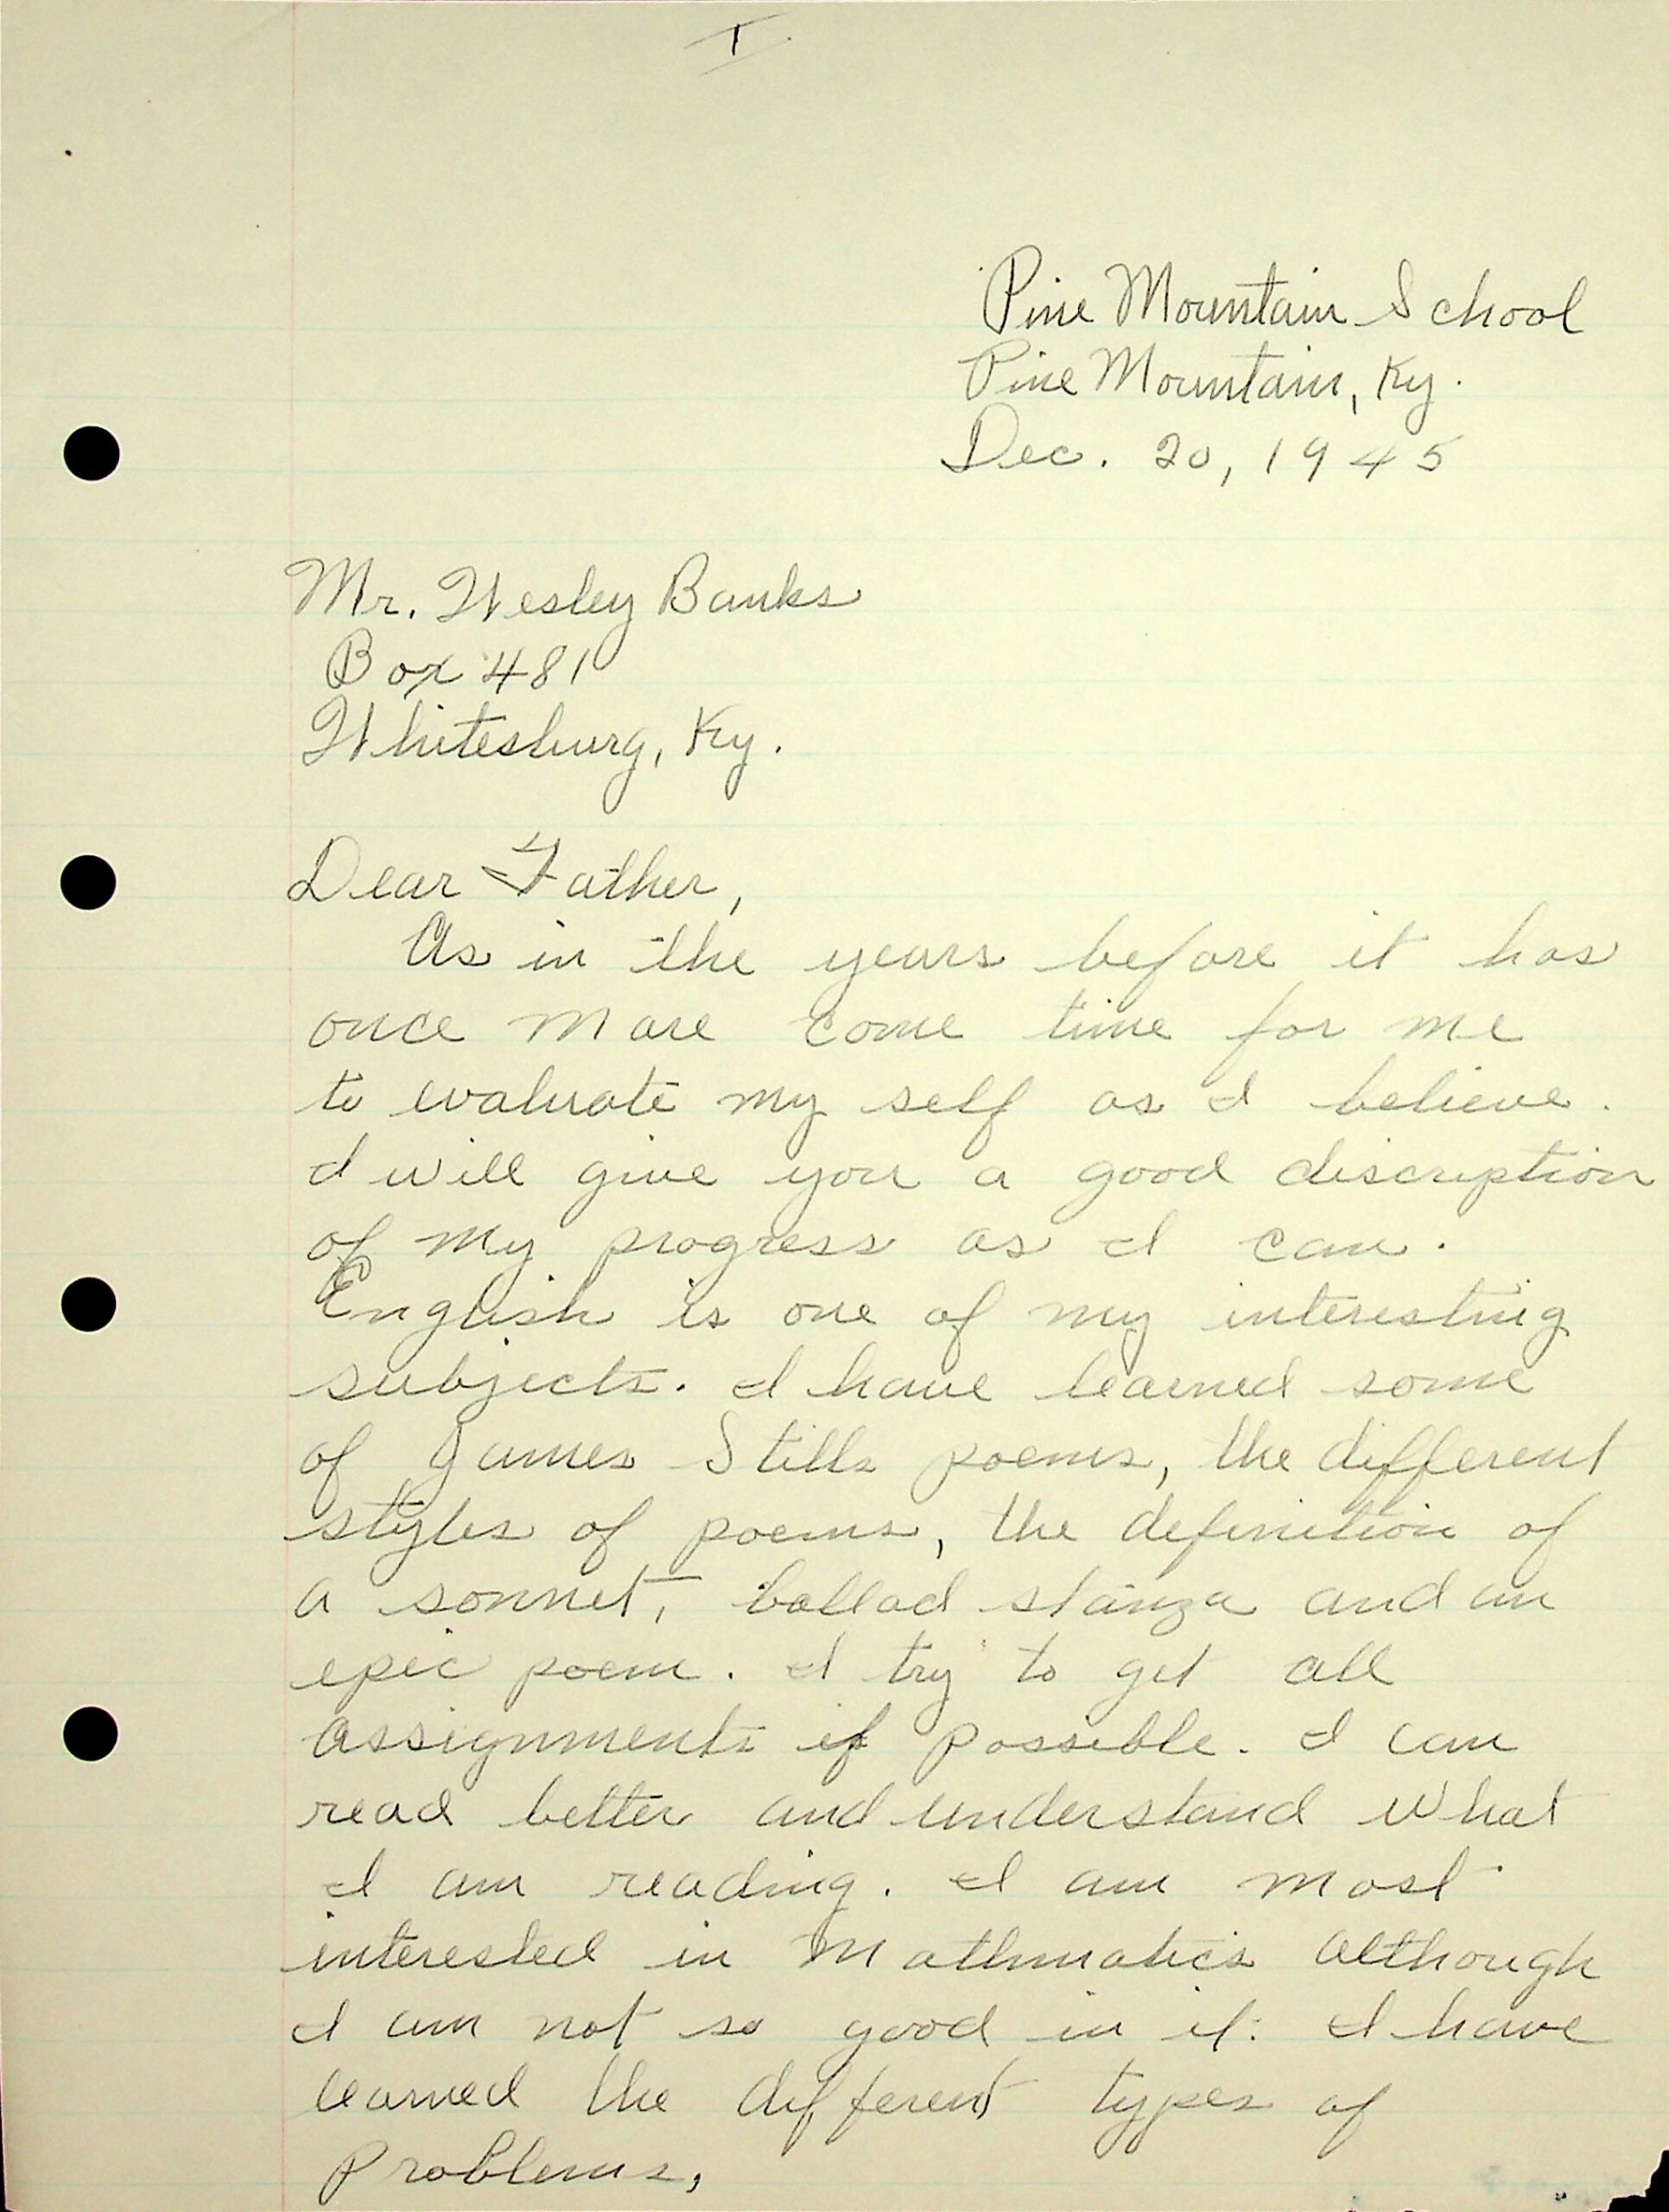 I
Pine Mountain School
Pine Mountain, Ky.
Dec. 20, 1945
Mr. Wesley Banks
Box 481
Whitesburg, Ky.
Dear Father,
As in the years before it has
once more come time for me
to evaluate my self as I believe.
I will give you a good discription
of my progress as I can.
English is one of my interesting
subjects. I have learned some
of James Stills poems, the different
styles of poems, the definition of
a sonnet, ballad stanza and an
epic poem. I try to get all
assignments if possible. I can
read better and understand what
I am reading. I am most
interested in Mathmatics although
I am not so good in it. I have
learned the different types of
Problems,